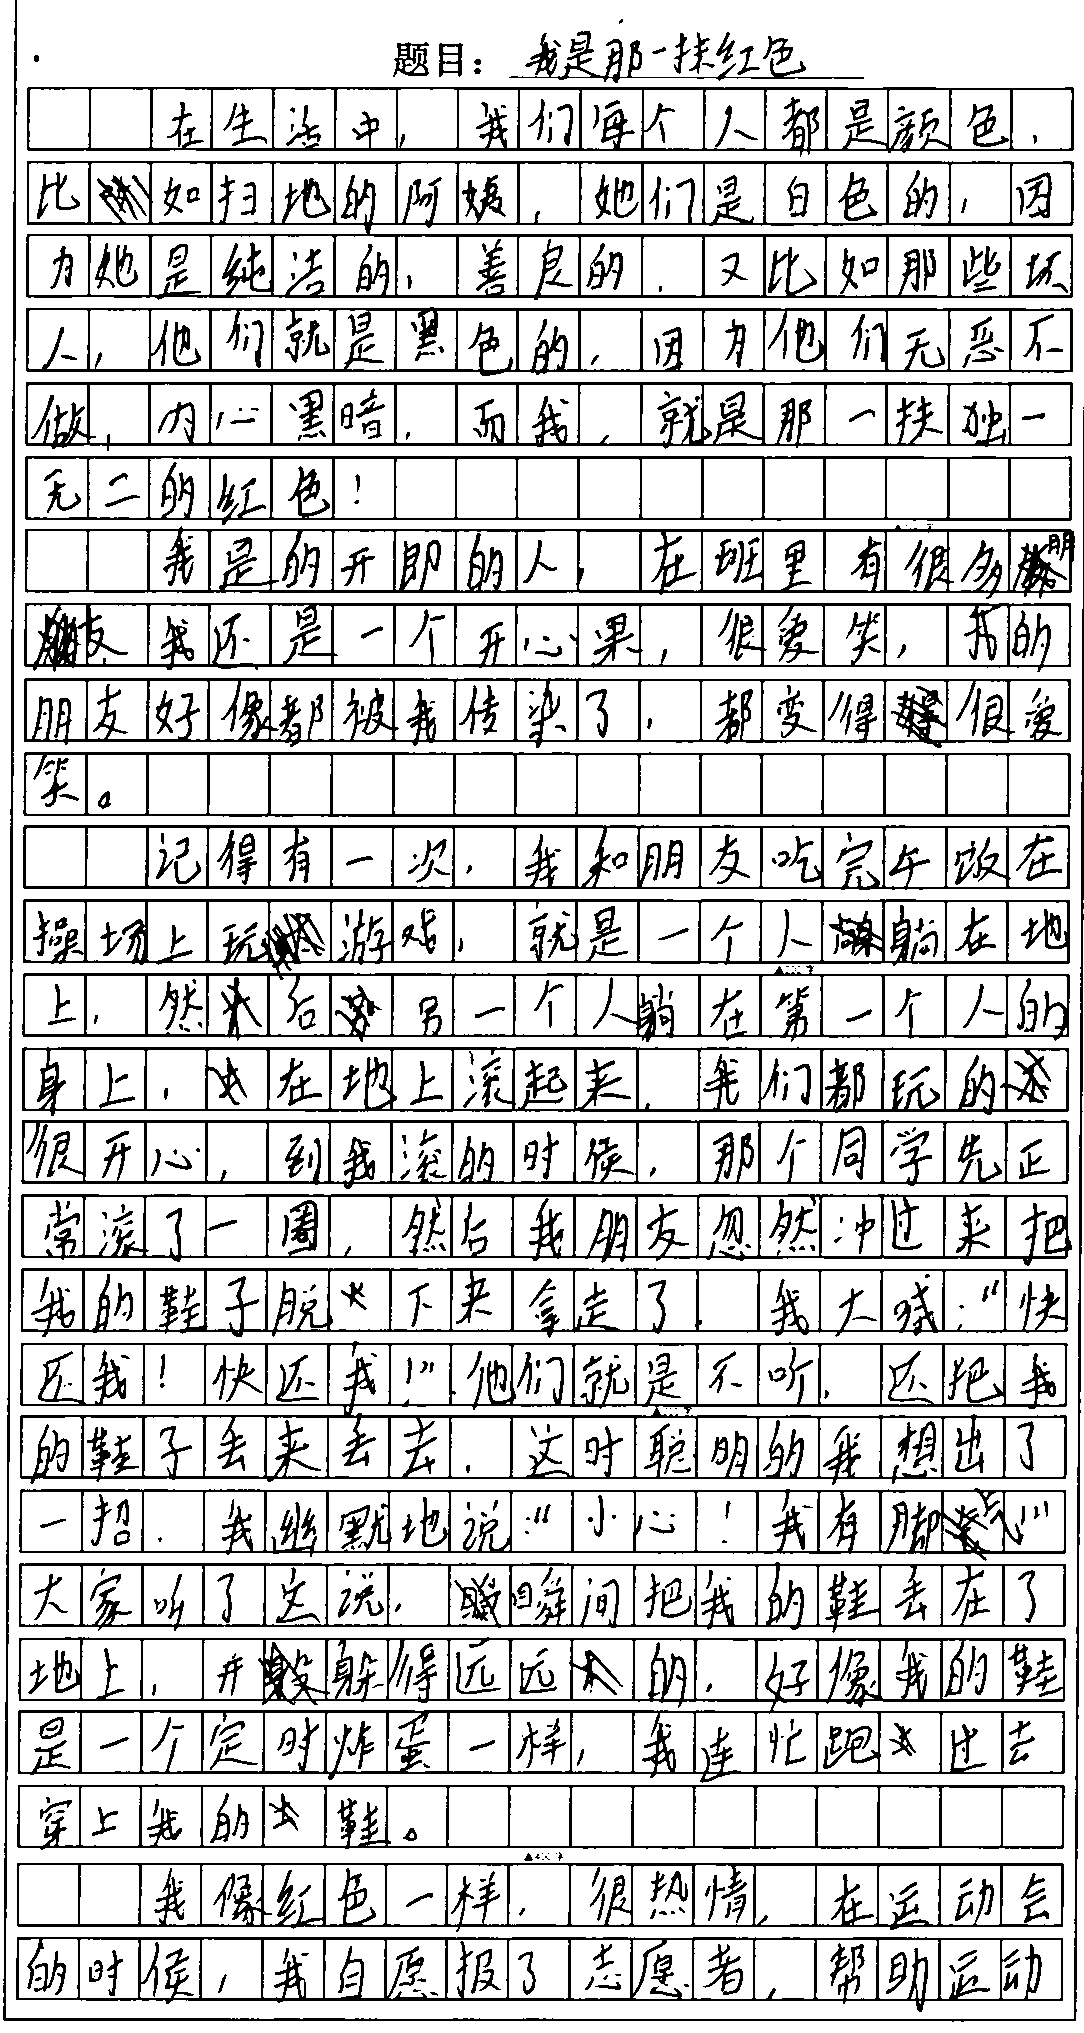 题目：我是那一抹红色
在生活中，我们每个人都是颜色，
比如扫地的阿姨，她们是白色的，因
为她是纯洁的，善良的．又比如那些坏
人，他们就是黑色的，因为他们无恶不
做，内心黑暗．而我，就是那一抹独一
无二的红色！
我是的开朗的人，在班里有很多朋
友．我还是一个开心果，很爱笑，我的
朋友好像都被我传染了，都变得很爱
笑。
记得有一次，我和朋友吃完午饭在
操场上玩游戏，就是一个人躺在地
上，然后另一个人躺在第一个人的
身上，在地上滚起来．我们都玩的
很开心，到我滚的时候，那个同学先正
常滚了一圈，然后我朋友忽然冲过来把
我的鞋子脱下来拿走了．我大喊：“快
还我！快还我！”他们就是不听，还把我
的鞋子丢来丢去．这时聪明的我想出了
一招．我幽默地说：“小心！我有脚气”
大家听了这说，瞬间把我的鞋丢在了
地上，并躲得远远的．好像我的鞋
是一个定时炸蛋一样，我连忙跑过去
穿上我的鞋。
我像红色一样，很热情，在运动会
的时候，我自愿报了志愿者，帮助运动